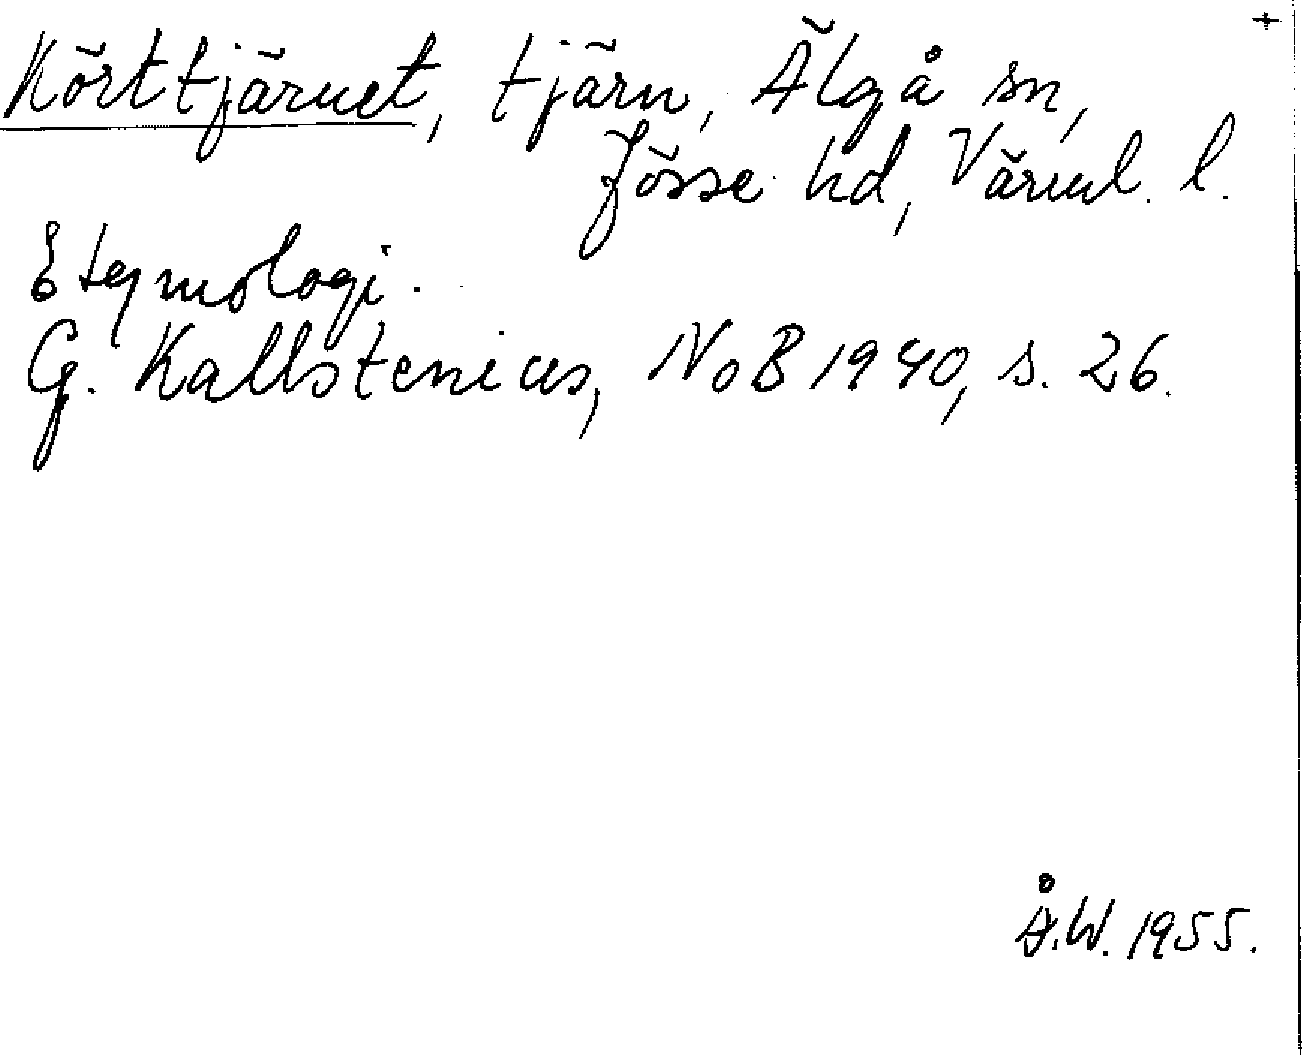 +
Körttjärnet, tjärn, Älgå sn,
Jösse hd, Värml. l.
Etymologi.
G. Kallstenius, NoB 1940, s. 26.
Å.W. 1955.